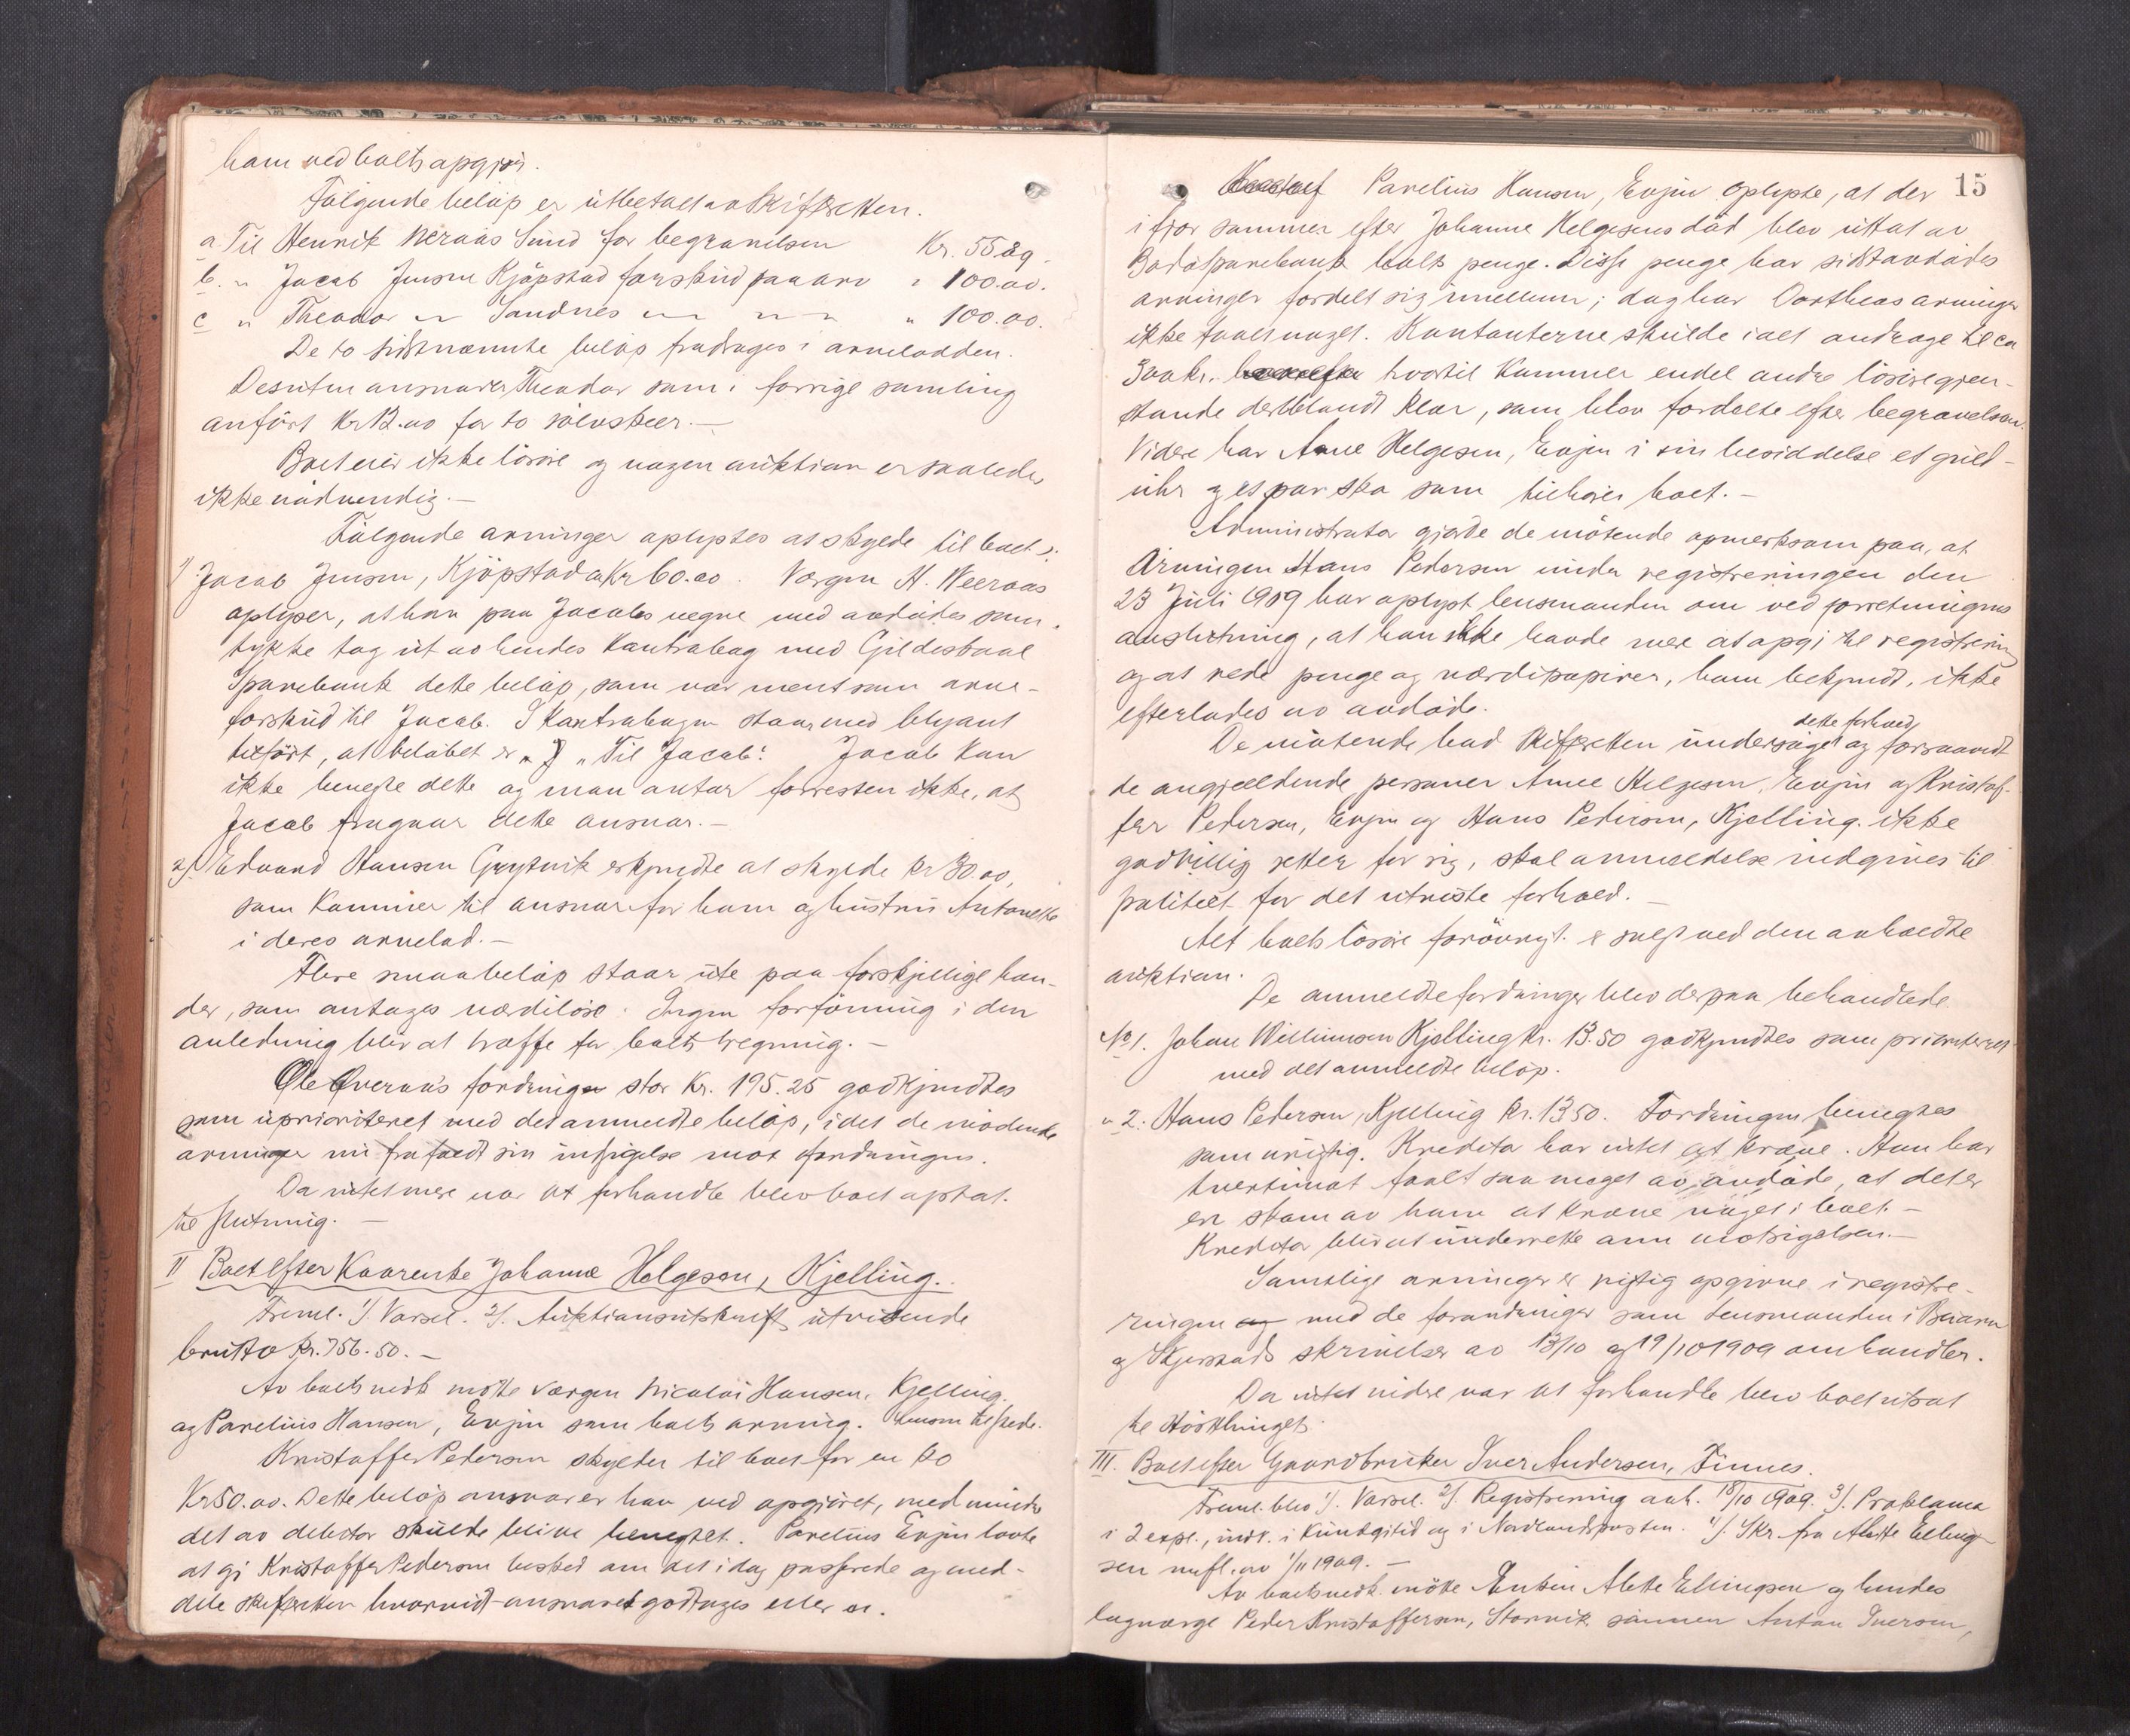 ham ved boets opgjør.
Følgende beløp er utbetalt av skifteretten.
a. Til Henrik Neraas Sund for begravelsen Kr. 55.89.
b. " Jacob Jensen Kjøpstad forskud paa arv " 100.00.
c " Theodor " Sandnes " " " " 100.00.
De to sidstnævnte beløp fradrages i arvelodden.
Desuten ansvarer Theodor som i forrige samling
anført Kr 12.00 for to sølvskeer.—
Boet eier ikke løsøre og nogen auktion er saaledes
ikke nødvendig.—
Følgende arvinger oplystes at skylde til boet:
1) Jacob Jensen, Kjøpstad Kr 60.00. Værgen H. Neeraas
oplyser, at han paa Jacobs vegne med avdødes sam-
tykke tog ut av hendes kontrabog med Gildeskaal
Sparebank dette beløp, som var ment som arve-
forskud til Jacob. I kontrabogen staar med blyant
tilført, at beløbet er "Til Jacob". Jacob kan
ikke benegte dette og man antar forresten ikke, at
Jacob fragaar dette ansvar.—
2) Edvard Hansen erkjendte at skylde kr 30.00,
som kommer til ansvar for ham og hustru Antonette
i deres arvelod.—
Flere smaabeløp staar ute paa forskjellige hæn-
der, som antages værdiløse. Ingen forføining i den
anledning blir at træffe for boets regning.—
Ole Øveraas fordring stor Kr. 195.25 godkjendtes
som uprioriteret med det anmeldte beløp, idet de mødende
arvinger nu frafaldt sin indsigelse mot fordringen.
Da intet mere var at forhandle blev boet optat
til slutning.—
II Boet efter Kaarenke Johanna Helgesen, Kjelling.
Freml. 1/ Varsel. 2/. Auktionsutskrift, utvisende
brutto kr. 756.50.—
Av boets vedk. møtte værgen Nicolai Hansen, Kjelling
og Parelius Hansen, Evjen som boets arving. Lensm tilstede.
Kristoffer Pedersen skylder til boet for en ko
Kr 50.00. Dette beløp ansvarer han ved opgjøret, med mindre
det av debitor skulde blive benegtet. Parelius Evjen lovte
at gi Kristoffer Pedersen besked om det i dag passerede og med-
dele skifteretten hvorvidt ansvaret godtages eller ei.
15
Parelius Hansen, Evjen oplyste, at der
ifjor sommer efter Johanne Helgesens død blev uttat av
Bodø Sparebank boets penge. Disse penge har sidstavdødes
arvinger fordelt sig imellem; dog har Dortheas arvinger
ikke faat noget. Kontanterne skulde i alt andrage til ca
300 kr. hvortil kommer endel andre løsøregjen-
stande deriblandt klær, som blev fordelte efter begravelsen.
Videre har Anne Helgesen, Evjen i sin besiddelse et guld-
uhr og et par sko som tilhører boet.—
Administrator gjorde de møtende opmerksom paa, at
Arvingen Hans Pedersen under registreringen den
23 Juli 1909 har oplyst lensmanden om ved forretningens
avslutning, at han ikke havde mere at opgi til registrering
og at rede penge og værdipapirer, ham bekjendt, ikke
efterlodes av avdøde.
De møtende bad skifteretten undersøge dette forhold og forsaavidt
de angjældende personer Anne Helgesen, Evjen og Kristof-
fer Pedersen, Evjen og Hans Pedersen, Kjelling. ikke
godvillig retter for sig, skal anmeldelse indgives til
politiet for det utviste forhold.—
Alt boets løsøre forøvrigt er solgt ved den avholdte
auktion.
De anmeldte fordringer blev derpaa behandlede.
No 1. Johan Williumsen Kjelling kr. 13.50 godkjendtes som prioriteret
med det anmeldte beløp.
" 2. Hans Pedersen, Kjelling kr. 13.50. Fordringen benegtes
som urigtig. Kreditor har intet at kræve. Han har
tvertimot faat saa meget av avdøde, at det er
en skam av ham at kræve noget i boet.—
Kreditor blir at underrette om motsigelsen.—
Samtlige arvinger er rigtig opgivne i registre-
ringen med de forandringer som lensmanden i Beiarn
og Skjerstads skrivelser av 13/10 og 19/10 1909 omhandler.
Da intet videre var at forhandle blev boet utsat
til Høsttinget.
III. Boet efter Gaardbruker Iver Andersen, Finnes.
Freml. blev 1/. Varsel. 2/. Registrering avh. 18/10 1909. 3/. Proklama
i 2 expl., indr. i Kundgjtid og i Nordlandsposten. 4/. Skr. fra Alette Elling-
sen av 1/11 1909.—
Av boets vedk. møtte Enken Alette Ellingsen og hendes
lagværge Peder Kristoffersen, Storvik, sønnen Anton Iversen,